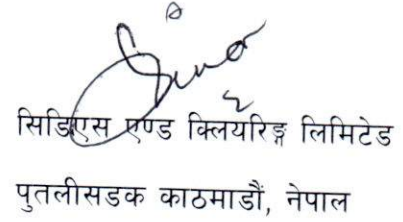 सिडिएस एण्ड क्लियरिङ्ग लिमिटेड
पुतलीसडक काठमाडौं, नेपाल